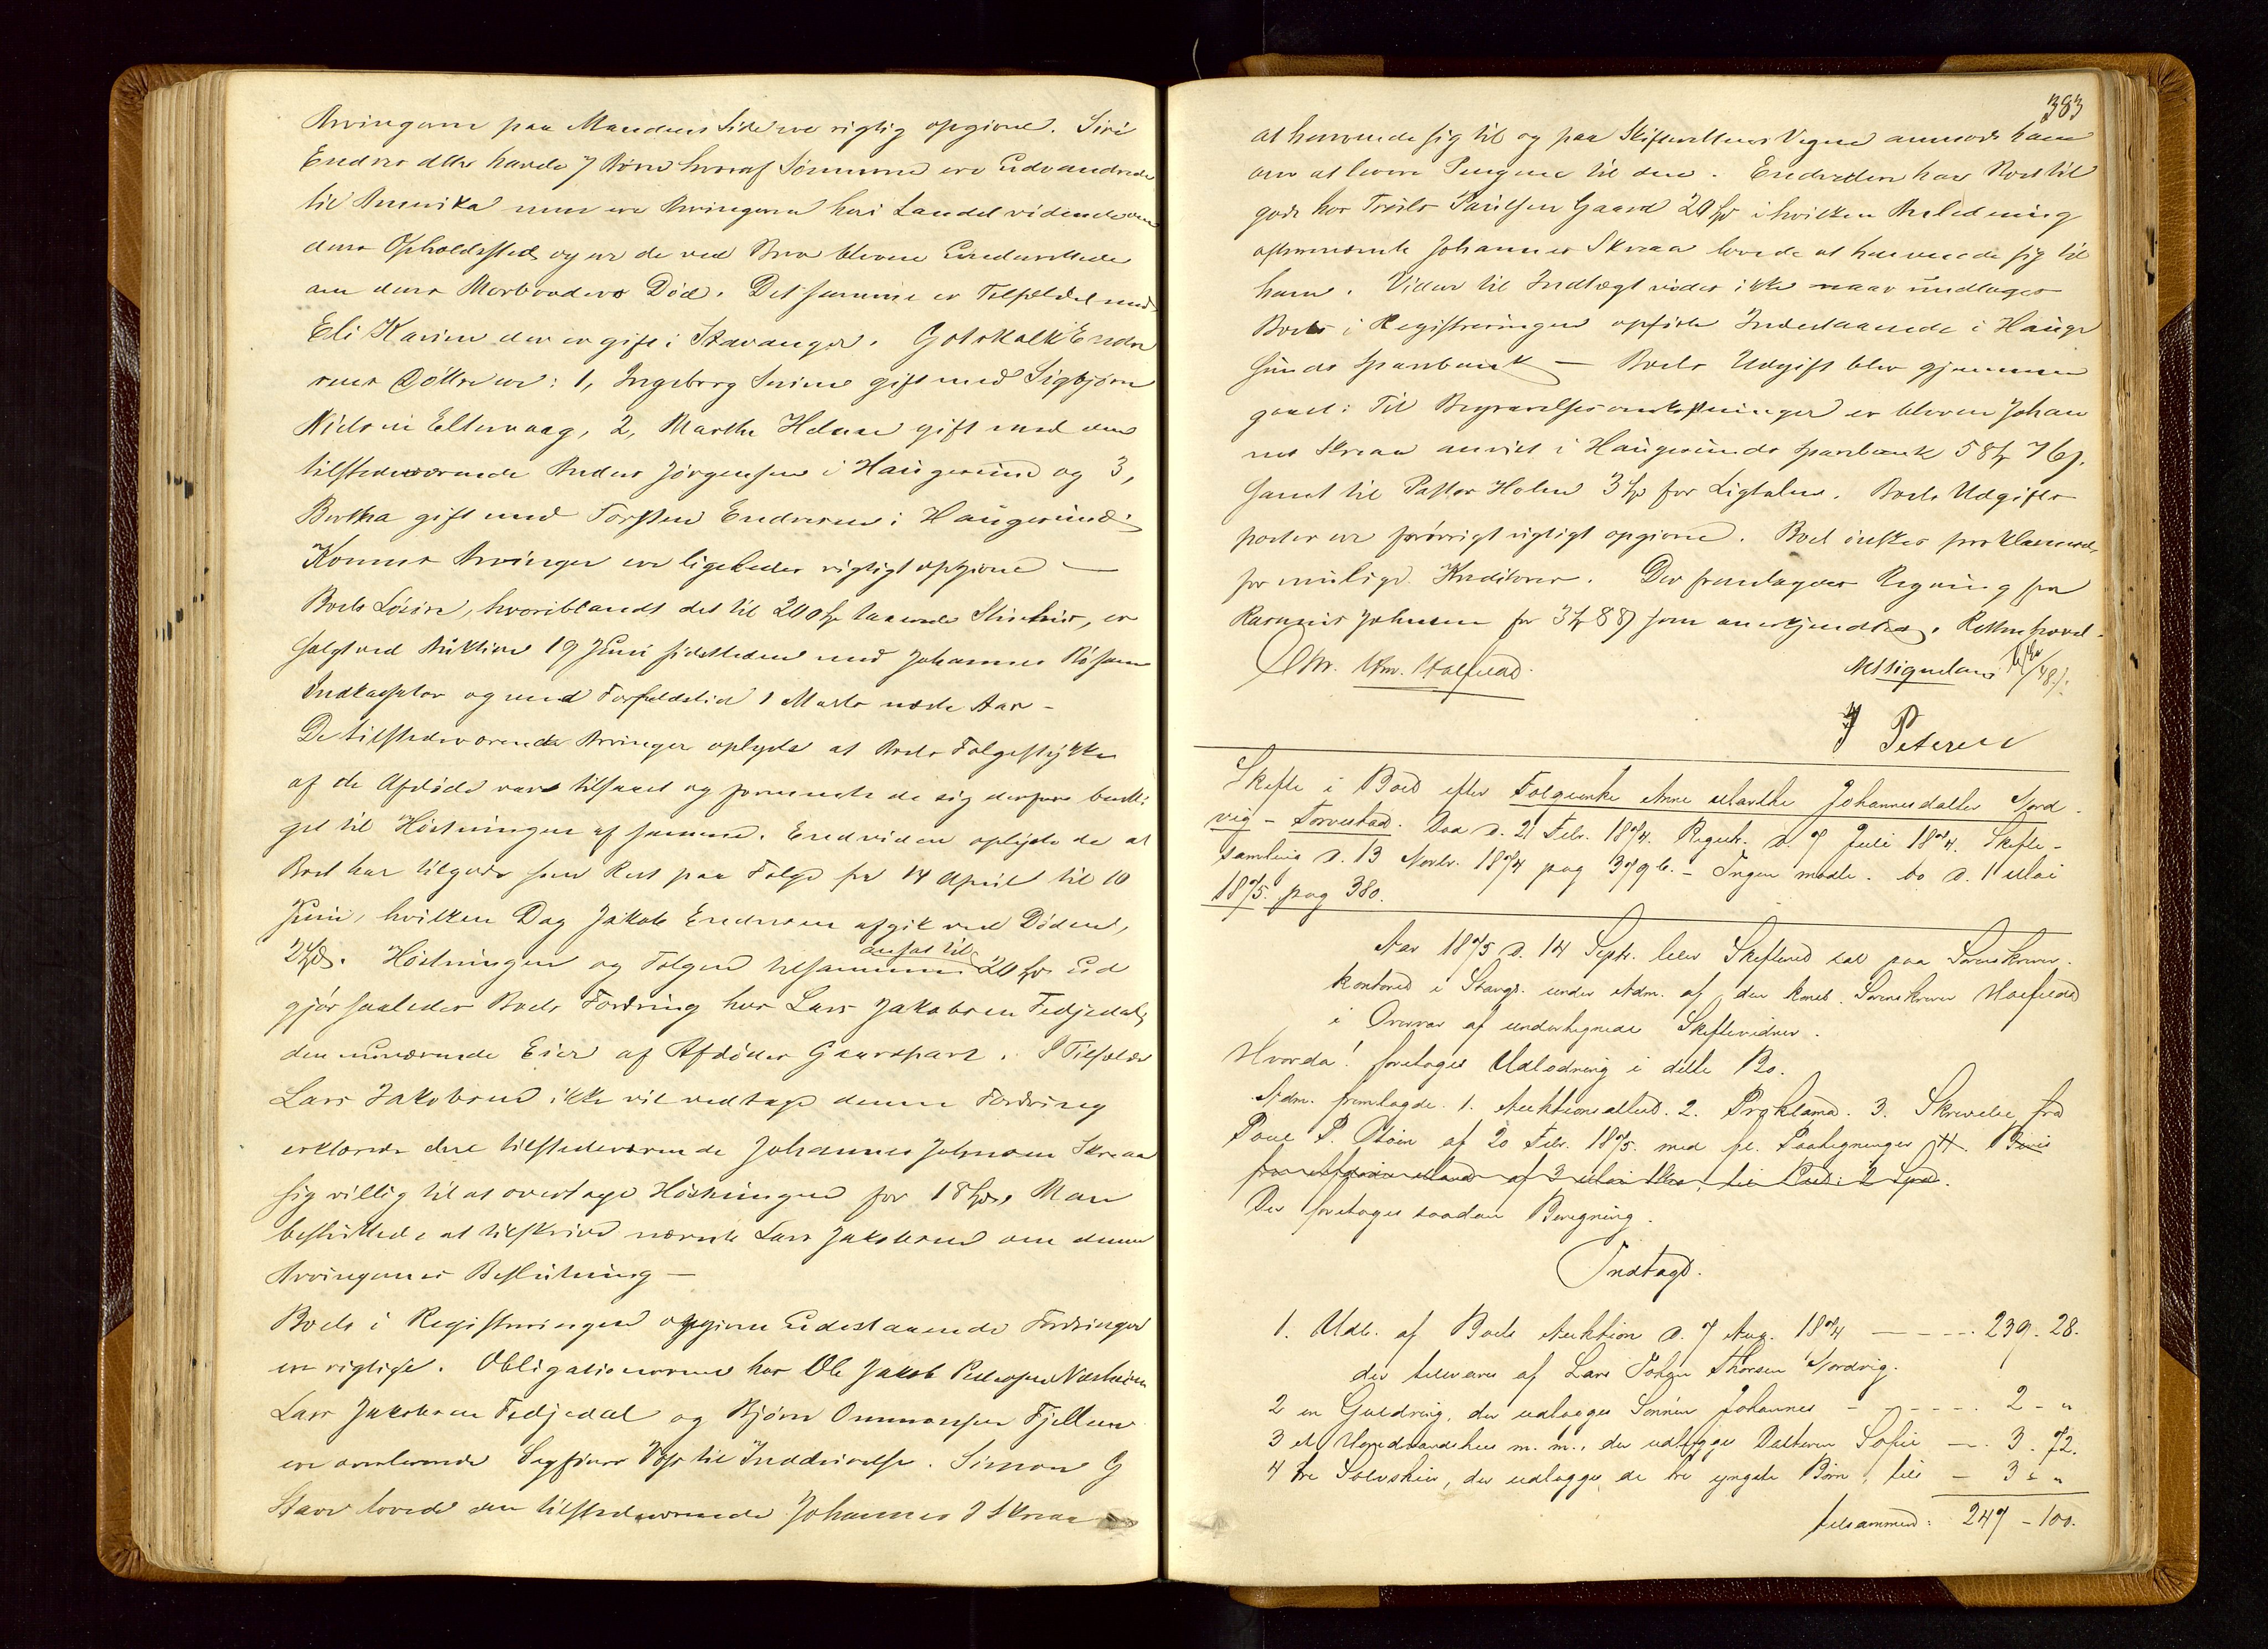 Arvingerne paa Mandens Side ere rigtig opgivne. Siri
Endres dtter havde 7 Børn hvoraf Sønnerne ere udvandrede
til Amerika men ere Arvingerne her i Landet vidende om
deres Opholdssted og er de ved Brev blevne underrettede
om deres Morbroders Død. Det samme er Tilfældet med
Eli Karine der er gift i Stavanger. Gotskalk Endre
sens Døttre ere: 1, Ingeborg Serine gift med Sigbjørn
Nielsen Eltervaag, 2, Marthe Helene gift med den
tilstedeværende Anders Jørgensen i Haugesund og 3,
Berthe gift med Torsten Endresen i Haugesund.
Konens Arvinger ere ligeledes rigtigt opgivne —
Boets Løsøre, hvoriblandt det til 200 Spd taxerede, er
solgt ved Auktion 19 Juni sidstleden med Johannes
Indkassator og med Forfaldstid 1 Marts næste Aar -
De tilstedeværende Arvinger oplyste at Boets Følgestykke
af de Afdøde vare tilsaaet og formente de sig derfor beret-
get til Høstningen af samme. Endvidere oplyste de at
Boet har tilgode som Rest paa Følge fra 14 April til 10
Juni, hvilken Dag Jakob Endresen afgik ved Døden,
2 Spd. Høstningen og Følgen tilsammen ansat til 20 Spd ud
gjør saaledes Boets Fordring hos Lars Jakobsen Fedjedal,
den nuværende Eier af Afdødes Gaardpart. I Tilfælde
Lars Jakobsen ikke vil vedtage denne Fordring
erklærede den tilstedeværende Johannes Johnsen Skreaa
sig villig til at overtage Høstningen for 18 Spd. Man
besluttede at tilskrive nævnte Lars Jakobsen om denne
Arvingernes Beslutning —
Boets i Registreringen opgivne udestaaende Fordringer
ere rigtige. Obligationerne hos Ole Jakob Pedersen
Lars Jakobsen Fedjedal og Bjørn Ommonsen Fjellen
ere overleverede Sagfører til Inddrivelse. Simon G
Stave lovede den tilstedeværende Johannes J Skreaa
383
at henvende sig til og paa Skifterettens Vegne anmode ham
om at levere Pengene til den. Endvidere har Boet til
gode hos Troels Paulsen Gaard 20 Spd i hvilken Anledning
ovennævnte Johannes Skreaa lovede at henvende sig til
ham. Videre til Indtægt vides ikke naar undtages
Boets i Registreringen opførte Indestaaende i Hauge
sunds Sparebank — Boets Udgift blev gjennem
gaaet: Til Begravelsesomkostninger er bleven Johan
nes Skreaa anvist i Haugesunds Sparebank 58 Spd 76 s.
samt til Pastor Holm 3 Spd for Ligtalen. Boets Udgifts
poster ere forøvrigt rigtigt opgivne. Boet ønskes proklameret
for mulige Kreditorer. Der fremlagdes Regning fra
Rasmus Johnsen for 3 Spd 88 s som anerkjendtes. Retten hævet.
Chr. Hm. Hoelfeldt. MSignelans
J Petersen
Skifte i Boet efter Følgeenke Anne Marthe Johannesdatter Nord
vig - Torvestad. Død d. 21 Febr. 1874. Registr. d. 7 Juli 1874. Skifte-
samling d. 13 Novbr. 1874 pag 379 b. - Ingen mødte. do d. 1 Mai
1875 pag 380.
Aar 1875 d. 14 Septr. blev Skifteret sat paa Sorenskriver-
kontoret i Stavgr. under Adm. af den konst. Sorenskriver Hoelfeldt
i Overvær af undertegnede Skiftevidner.
Hvorda! foretoges Udlodning i dette Bo.
Adm. fremlagde. 1. Auktionsattest. 2. Proklama. 3. Skrivelse fra
Poul P. Støin af 20 Febr. 1875. med pl. Paategninger 4. Bevis
fra af 3 Mai
Der foretoges saadan Beregning.
Indtægt.
1. Udb. af Boets Auktion d. 7 Aug. 1874 — - - - . 239. 28.
der tilsvares af Lars Johan Thorsen Nordvig.
2 en Guldring, der udlægges Sønnen Johannes - - - - - . 2 - "
3 et Hovedvandshus m. m., der udlægges Datteren Sofie —. 3. 72.
4 tre Sølvskeer, der udlægges de tre yngste Børn, til — 3 - "
tilsammen: 247 - 100.